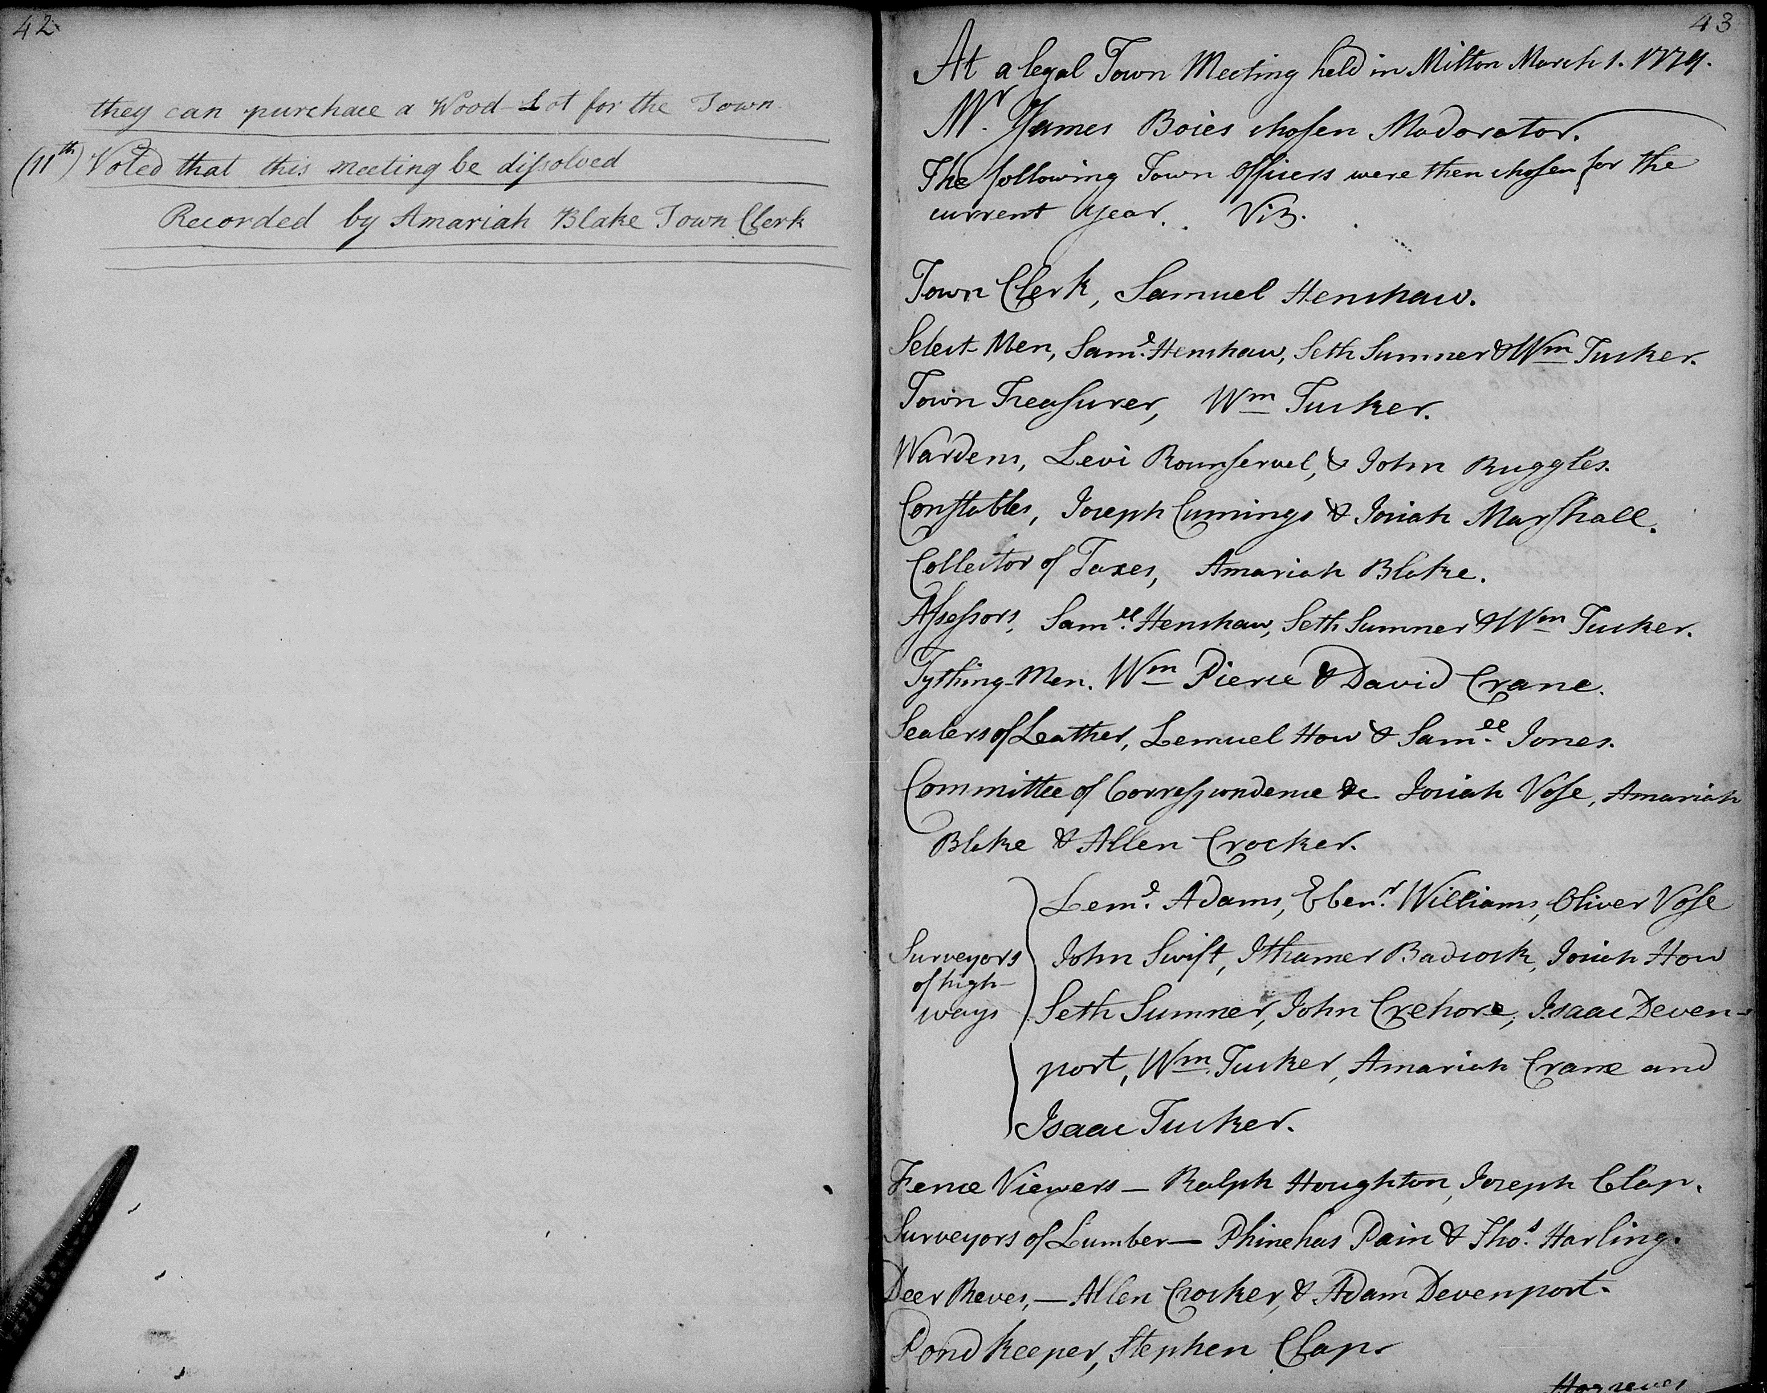 42
they can purchace a Wood Lot for the Town
(11th) Voted that this meeting be dissolved
Recorded by Amariah Blake Town Clerk
43
At a legal Town Meeting held in Milton March 1. 1779.
Mr. James Boies chosen Madorator.
The following Town Officers were then chosen for the
current year. Viz.
Town Clerk, Samuel Henshaw.
Select Men, Saml. Henshaw, Seth Sumner & Wm Tucker.
Town Treasurer, Wm Tucker.
Wardens, Levi Rounsevel, & John Ruggles.
Constables, Joseph Cumings & Josiah Marshall.
Collector of Taxes, Amariah Blake.
Assessors, Samll. Henshaw, Seth Sumner & Wm Tucker.
Tything-Men. Wm Pierce & David Crane.
Sealers of Leather, Lemuel How & Samll. Jones.
Committee of Correspondence &c Josiah Vose, Amariah
Blake & Allen Crocker.
Surveyors of high-ways
Leml. Adams, Ebenr. Williams, Oliver Vose
John Swift, Ithamer Badcock, Josiah How
Seth Sumner, John Crehore, Isaac Deven-
port, Wm. Tucker, Amariah Crane and
Isaac Tucker.
Fence Viewers — Ralph Houghton, Joseph Clap.
Surveyors of Lumber — Phinehas Pain & Thos. Harling.
Deer Reves, — Allen Crocker, & Adam Devenport.
Pond Keeper, Stephen Clap.
Hogreves